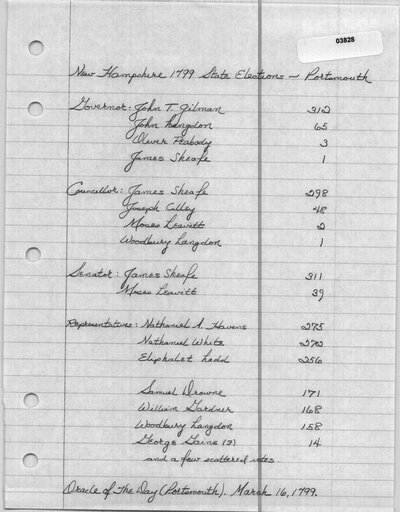 03828
New Hampshire 1799 State Elections - Portsmouth
Governor: John T. Gilman 312
John Langdon 65
Oliver Peabody 3
James Sheafe 1
Councillor: James Sheafe 298
Joseph Cilley 48
Moses Leavitt 2
Woodbury Langdon 1
Senator: James Sheafe 311
Moses Leavitt 39
Representatives: Nathaniel A. Havens 275
Nathaniel White 272
Eliphalet Ladd 256
Samuel Drowne 171
William Gardner 168
Woodbury Langdon 158
George Gains (?) 14
and a few scattered votes.
Oracle of The Day (Portsmouth). March 16, 1799.